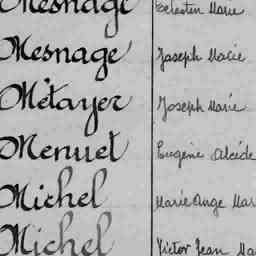 Mesnage Célestin Marie
Mesnage Joseph Marie
Métayer Joseph Marie
Menuet Eugène Alcide
Michel Marie Ange Mar
Michel Victor Jean Ma